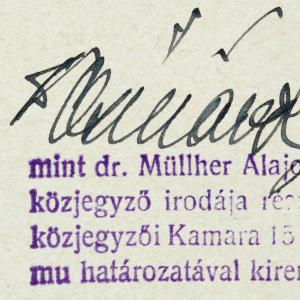 mint dr. Müllher Alajo
közjegyző irodája rés
közjegyzői Kamara 15
mu határozatával kiren